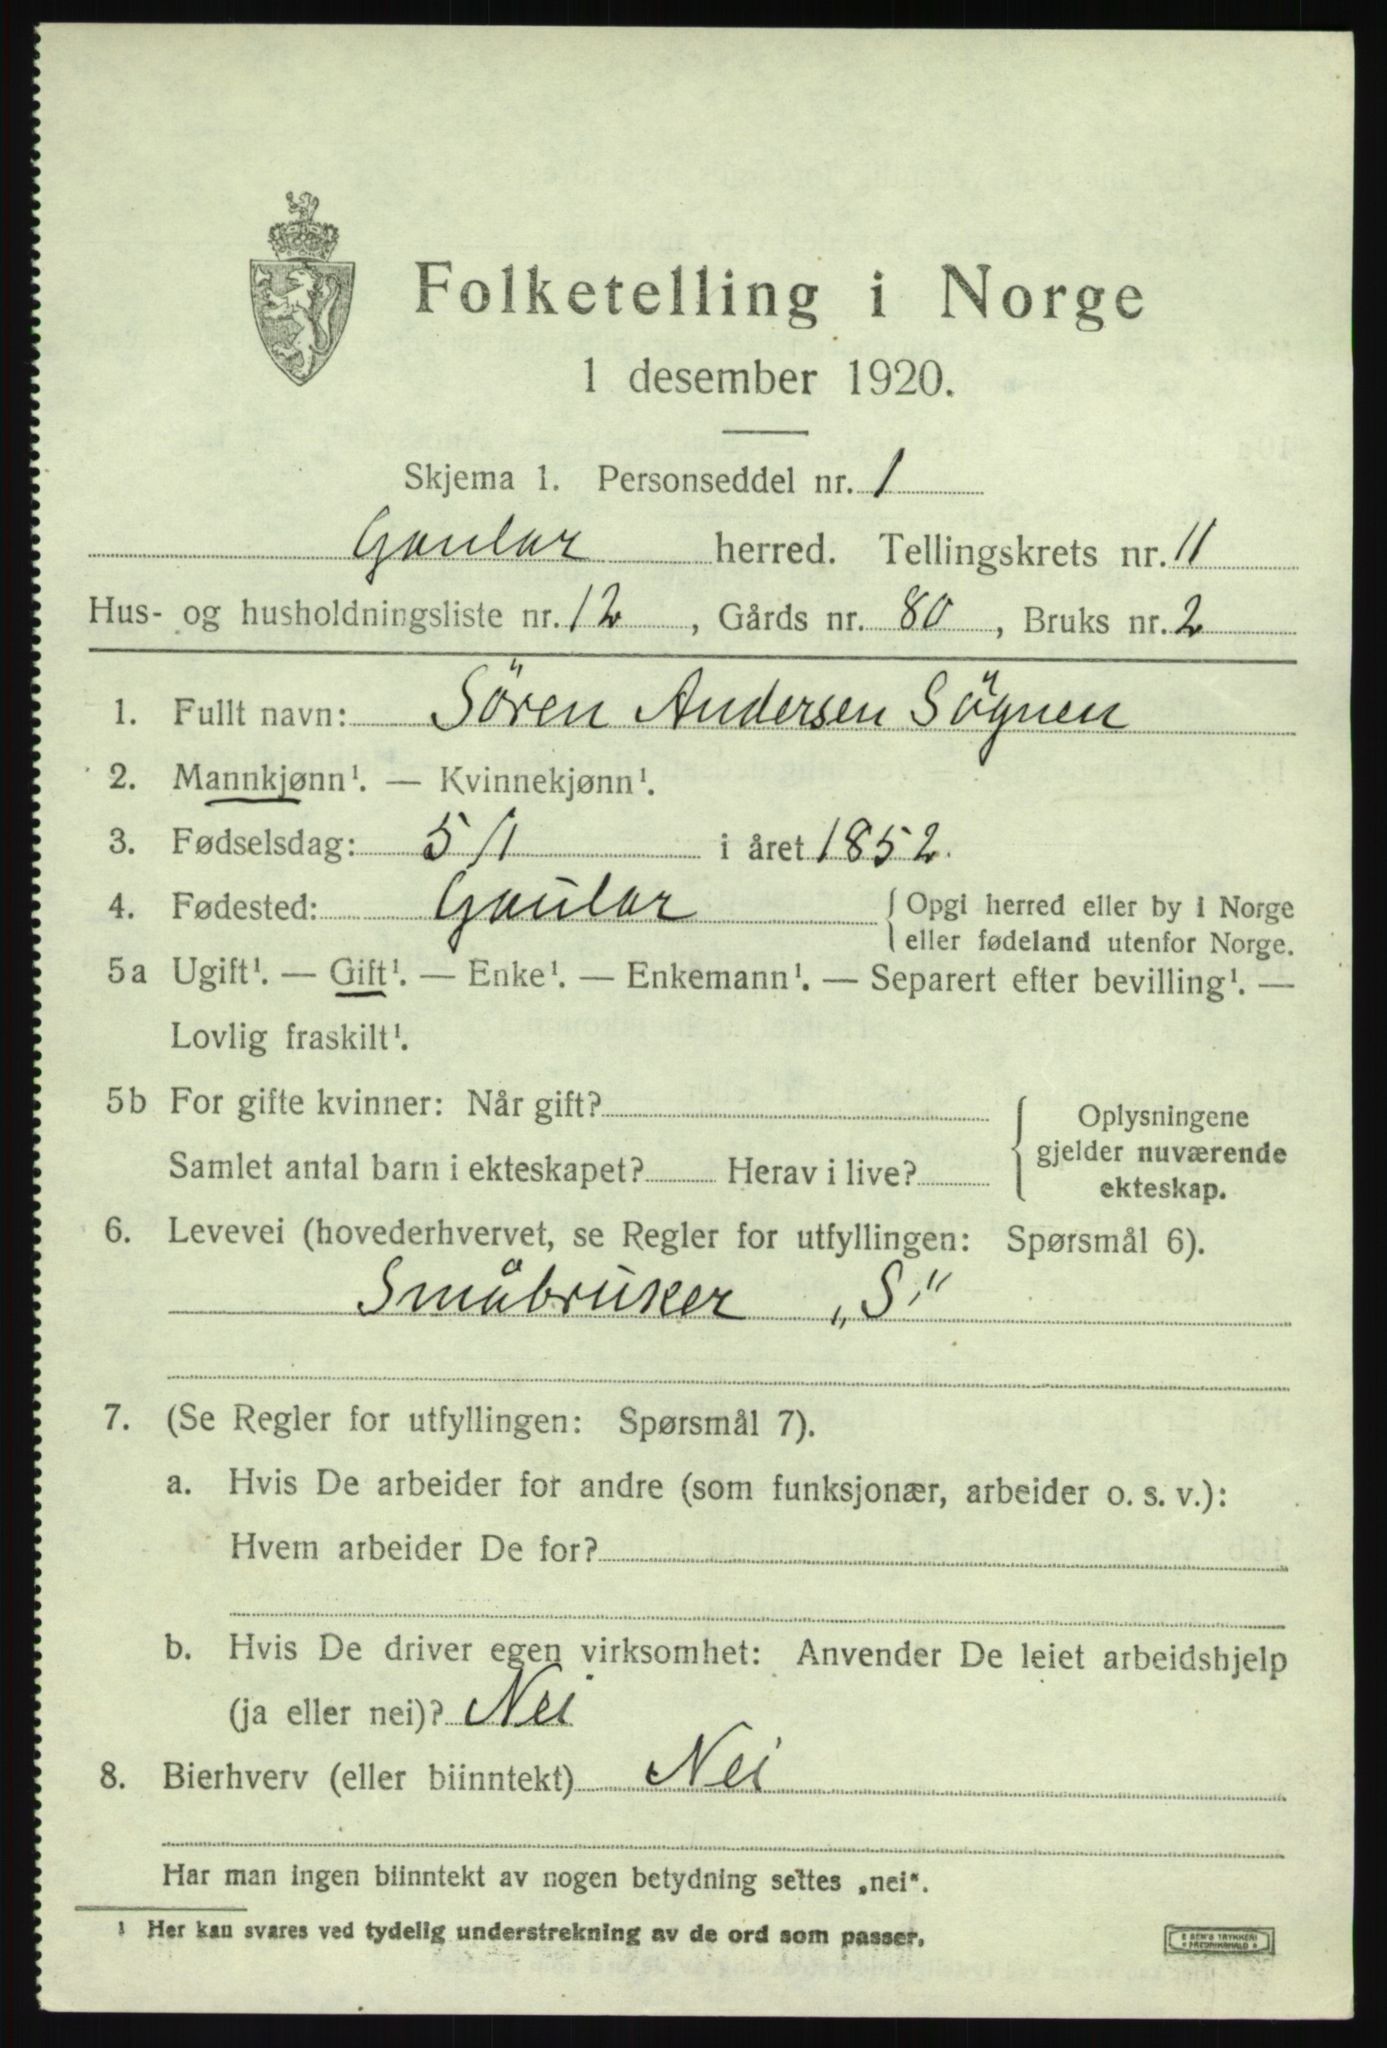 Folketelling i Norge
1 desember 1920.
Skjema 1. Personseddel nr. 1
Gaular herred. Tellingskrets nr. 11
Hus- og husholdningsliste nr. 12, Gårds nr. 80, Bruks nr. 2
1. Fullt navn: Sören Andersen Sögnen
2. Mannkjønn¹. — Kvinnekjønn¹.
3. Fødselsdag: 5/1 i året 1852.
4. Fødested: Gaular { Opgi herred eller by i Norge
eller fødeland utenfor Norge.
5a Ugift¹. — Gift¹. — Enke¹. — Enkemann¹. — Separert efter bevilling¹. —
Lovlig fraskilt¹.
5b For gifte kvinner: Når gift? { Oplysningene
gjelder nuværende
Samlet antal barn i ekteskapet? Herav i live?
ekteskap.
6. Levevei (hovederhvervet, se Regler for utfyllingen: Spørsmål 6).
Småbruker „S"
7. (Se Regler for utfyllingen: Spørsmål 7).
a. Hvis De arbeider for andre (som funksjonær, arbeider o. s. v.):
Hvem arbeider De for?
b. Hvis De driver egen virksomhet: Anvender De leiet arbeidshjelp
(ja eller nei)? Nei
8. Bierhverv (eller biinntekt) Nei
Har man ingen biinntekt av nogen betydning settes „nei".
¹ Her kan svares ved tydelig understrekning av de ord som passer.
TRYKKERI
FREDRIKSHALD